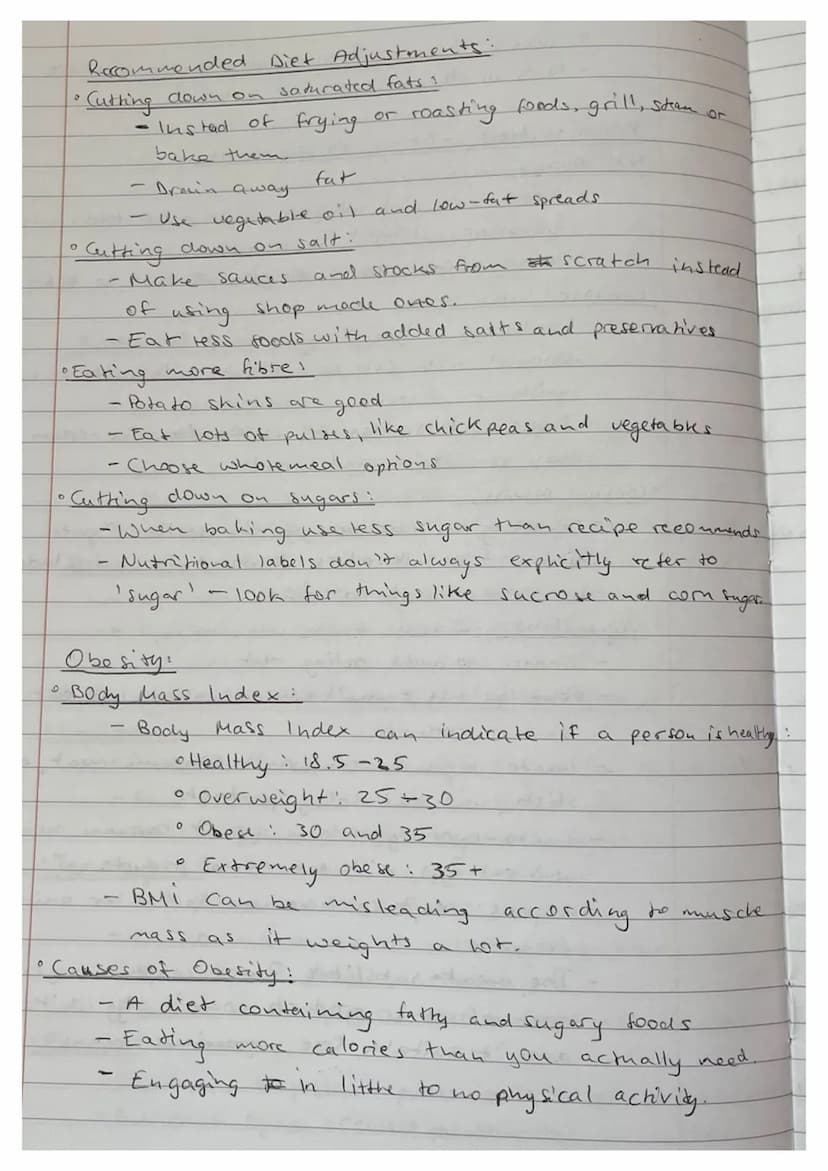 Recommended Diet Adjustments:
• Cutting down on saturated fats:
- Instead of frying or roasting foods, grill, steam or
bake them
- Drain away fat
- Use vegetable oil and low-fat spreads
• Cutting down on salt:
- Make sauces and stocks from scratch instead
of using shop made ones.
- Eat less foods with added salts and preservatives
• Eating more fibre:
- Potato skins are good
- Eat lots of pulses, like chickpeas and vegetables
- Choose wholemeal options
• Cutting down on sugars:
- When baking use less sugar than recipe recommends
- Nutritional labels don't always explicitly refer to
'sugar' - look for things like sucrose and corn sugar.
Obesity:
• Body Mass Index:
- Body Mass Index can indicate if a person is healthy:
• Healthy: 18.5-25
• Overweight: 25-30
• Obese: 30 and 35
• Extremely obese: 35+
- BMI can be misleading according to muscle
mass as it weights a lot.
• Causes of Obesity:
- A diet containing fatty and sugary foods
- Eating more calories than you actually need.
- Engaging in little to no physical activity.